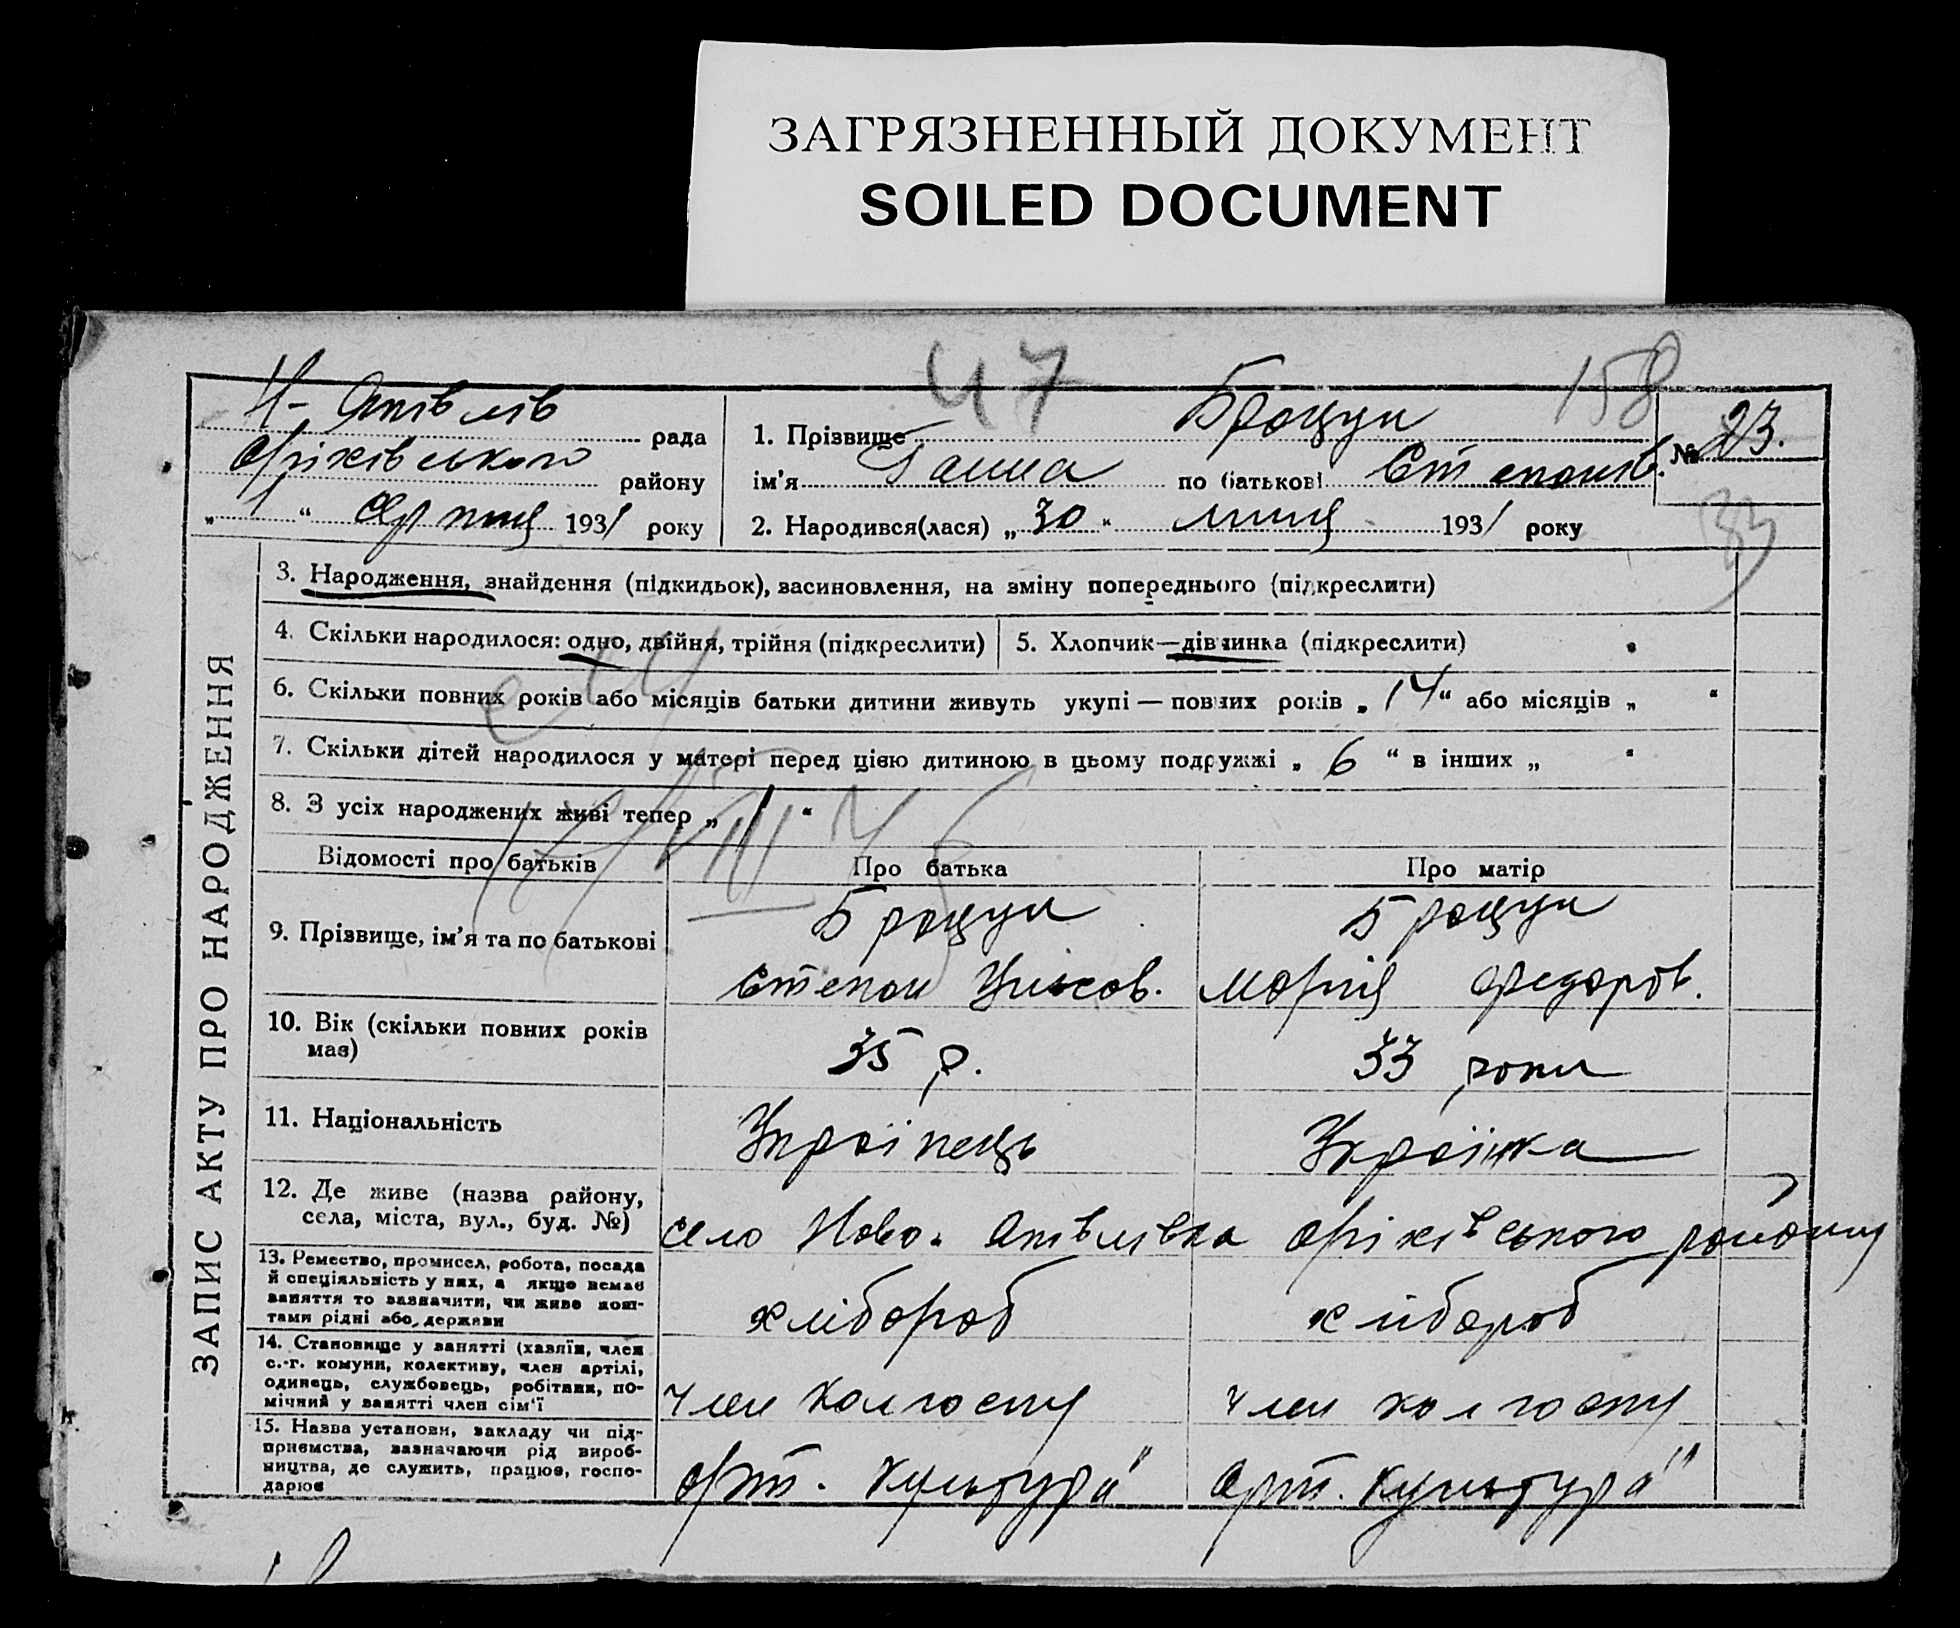 ЗАГРЯЗНЕННЫЙ ДОКУМЕНТ
SOILED DOCUMENT
47
158
Н- Яківлів рада
Оріхівського району
„1“ Серпня 1931 року
1. Прізвище Броцун
ім'я Ганна по батькові Степанів.
2. Народився(лася) „30“ липня 1931 року
№ 23.
33
ЗАПИС АКТУ ПРО НАРОДЖЕННЯ
3. Народження, знайдення (підкидьок), засиновлення, на зміну попереднього (підкреслити)
4. Скільки народилося: одно, двійня, трійня (підкреслити)
5. Хлопчик—дівчинка (підкреслити)
6. Скільки повних років або місяців батьки дитини живуть укупі — повних років „14“ або місяців „ “
7. Скільки дітей народилося у матері перед цією дитиною в цьому подружжі „6“ в інших „ “
8. З усіх народжених живі тепер „ “
Відомості про батьків
Про батька
Про матір
9. Прізвище, ім'я та по батькові
Броцун
Степан Улісов.
Броцун
Марія Федоров.
10. Вік (скільки повних років
має)
35 р.
33 роки
11. Національність
Українець
Українка
12. Де живе (назва району,
села, міста, вул., буд. №)
село Ново-Яківлівка Оріхівського району
13. Ремество, промисел, робота, посада
й спеціяльність у них, а якщо немає
заняття то зазначити, чи живе кош-
тами рідні або держави
хлібороб
хлібороб
14. Становище у занятті (хазяїн, член
с.-г. комуни, колективу, член артілі,
одинець, службовець, робітник, по-
мічний у занятті член сім'ї
член колгоспу
член колгоспу
15. Назва установи, закладу чи під-
приємства, зазначаючи рід вироб-
ництва, де служить, працює, госпо-
дарює
Арт. Культура"
Арт. Культура"